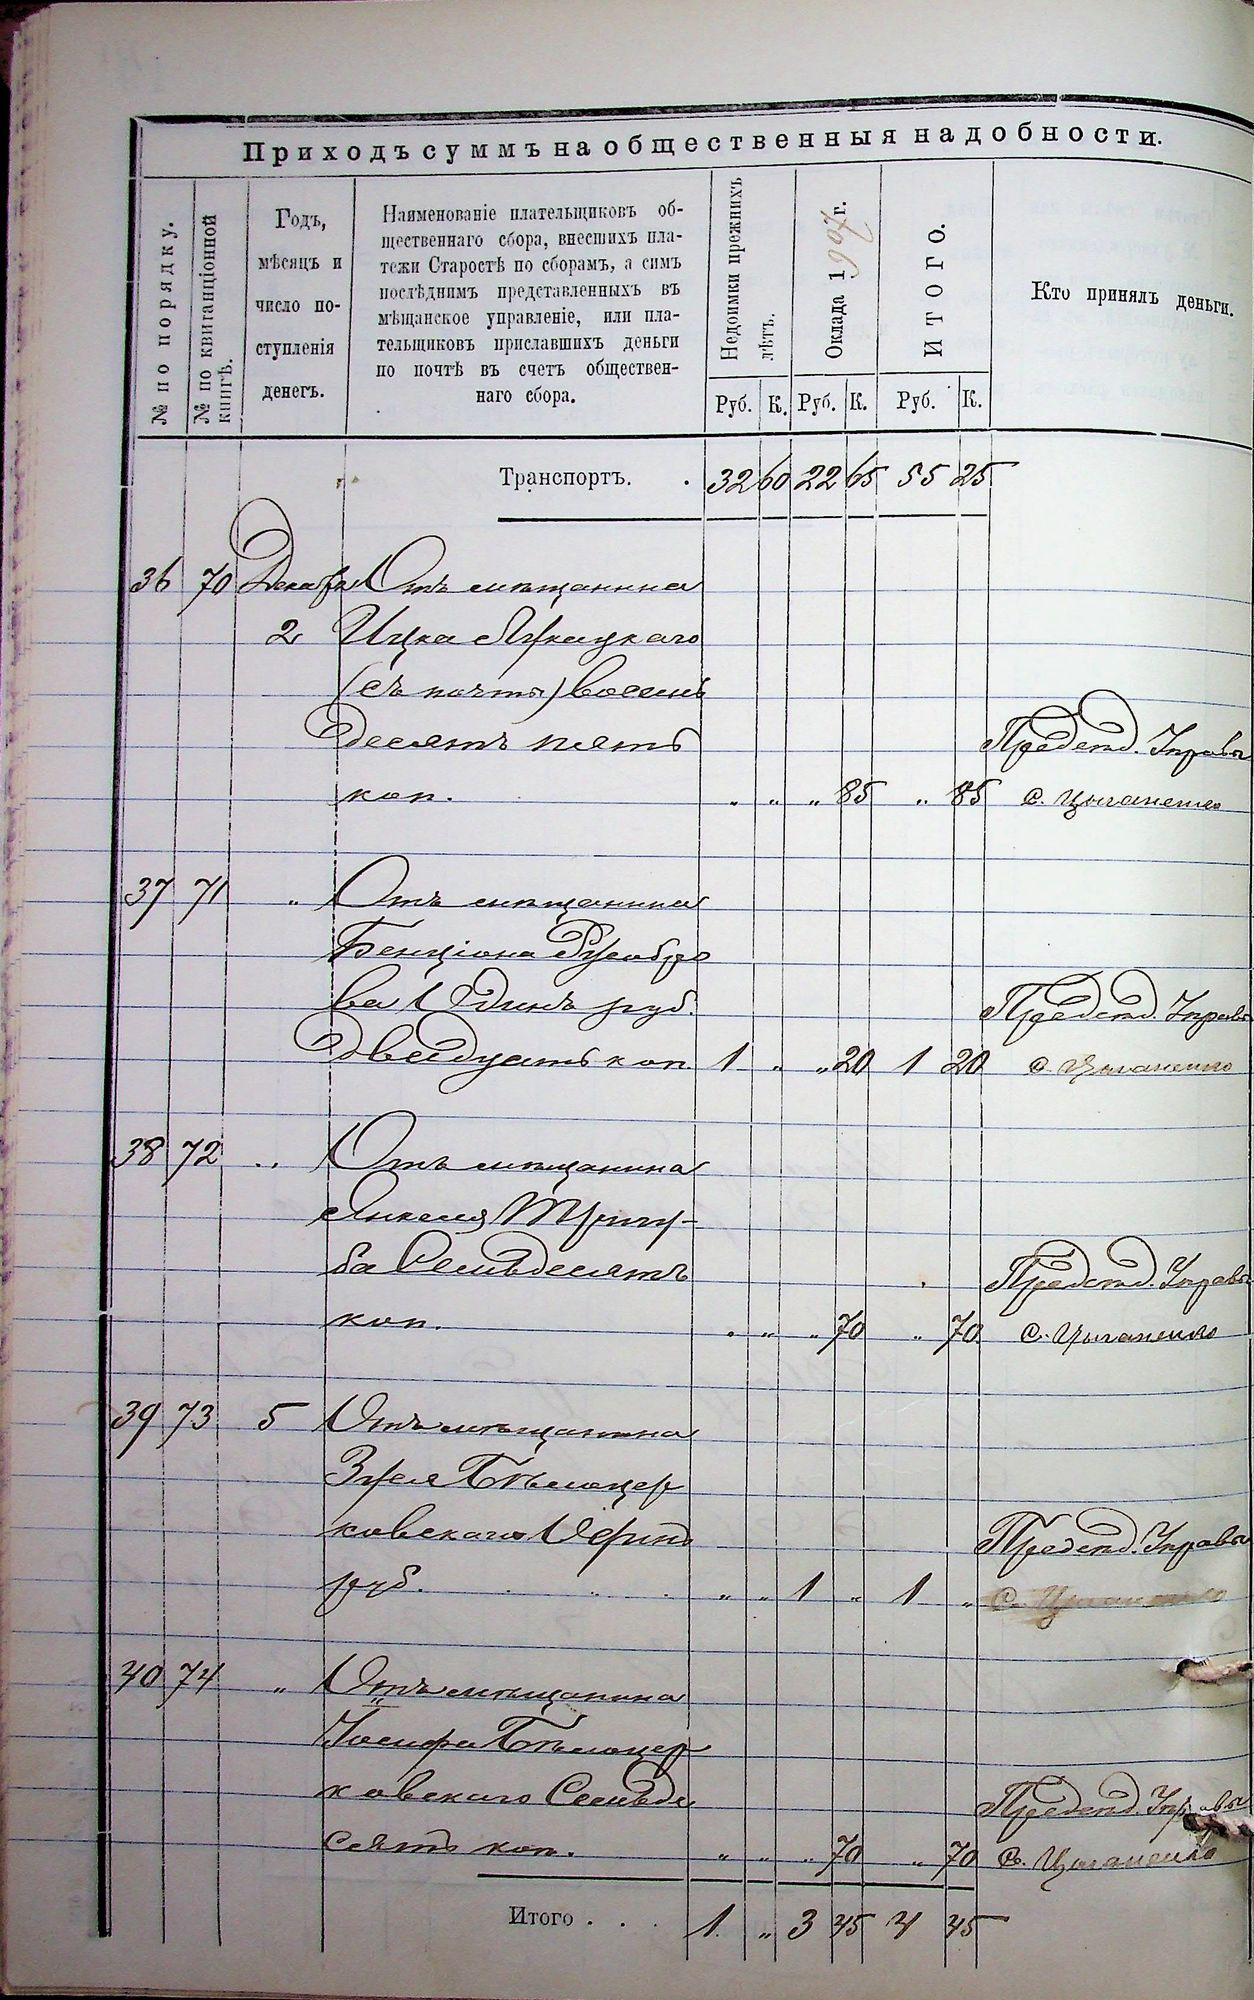 Приходъ суммъ на общественныя надобности.
№ по порядку.
№ по квитанціонной книгѣ.
Годъ,
мѣсяцъ и
число по-
ступленія
денегъ.
Наименованіе плательщиковъ об-
щественнаго сбора, внесшихъ пла-
тежи Старостѣ по сборамъ, а симъ
послѣднимъ представленныхъ въ
мѣщанское управленіе, или пла-
тельщиковъ приславшихъ деньги
по почтѣ въ счетъ обществен-
наго сбора.
Недоимки прежнихъ лѣтъ.
Оклада 1907 г.
Итого.
Кто принялъ деньги.
Руб. К. Руб. К. Руб. К.
Транспортъ. . 32 60 22 65 55 25
36 70 Декабря Отъ мѣщанина
2 Ицка
(съ почты) восемь
десятъ пять Предстд. Управы
коп. „ „ „ 85 „ 85 С. Цыганенко
37 71 „ Отъ мѣщанина
Бенціона
ва Одинъ руб. Предстд. Управы
двадцать коп. 1 „ „ 20 1 20 С. Цыганенко
38 72 „ Отъ мѣщанина
Янкеля Тригу-
ба Семьдесятъ Предстд. Управы
коп. „ „ „ 70 „ 70 С. Цыганенко
39 73 5 Отъ мѣщанина
Бѣлоцер
ковскаго Одинъ Предстд. Управы
руб. „ „ 1 „ 1 „ С. Цыганенко
40 74 „ Отъ мѣщанина
Іосифа Бѣлоцер
ковскаго Семьде Предстд. Управы
сятъ коп. „ „ „ 70 „ 70 С. Цыганенко
Итого . . . 1 „ 3 45 4 45